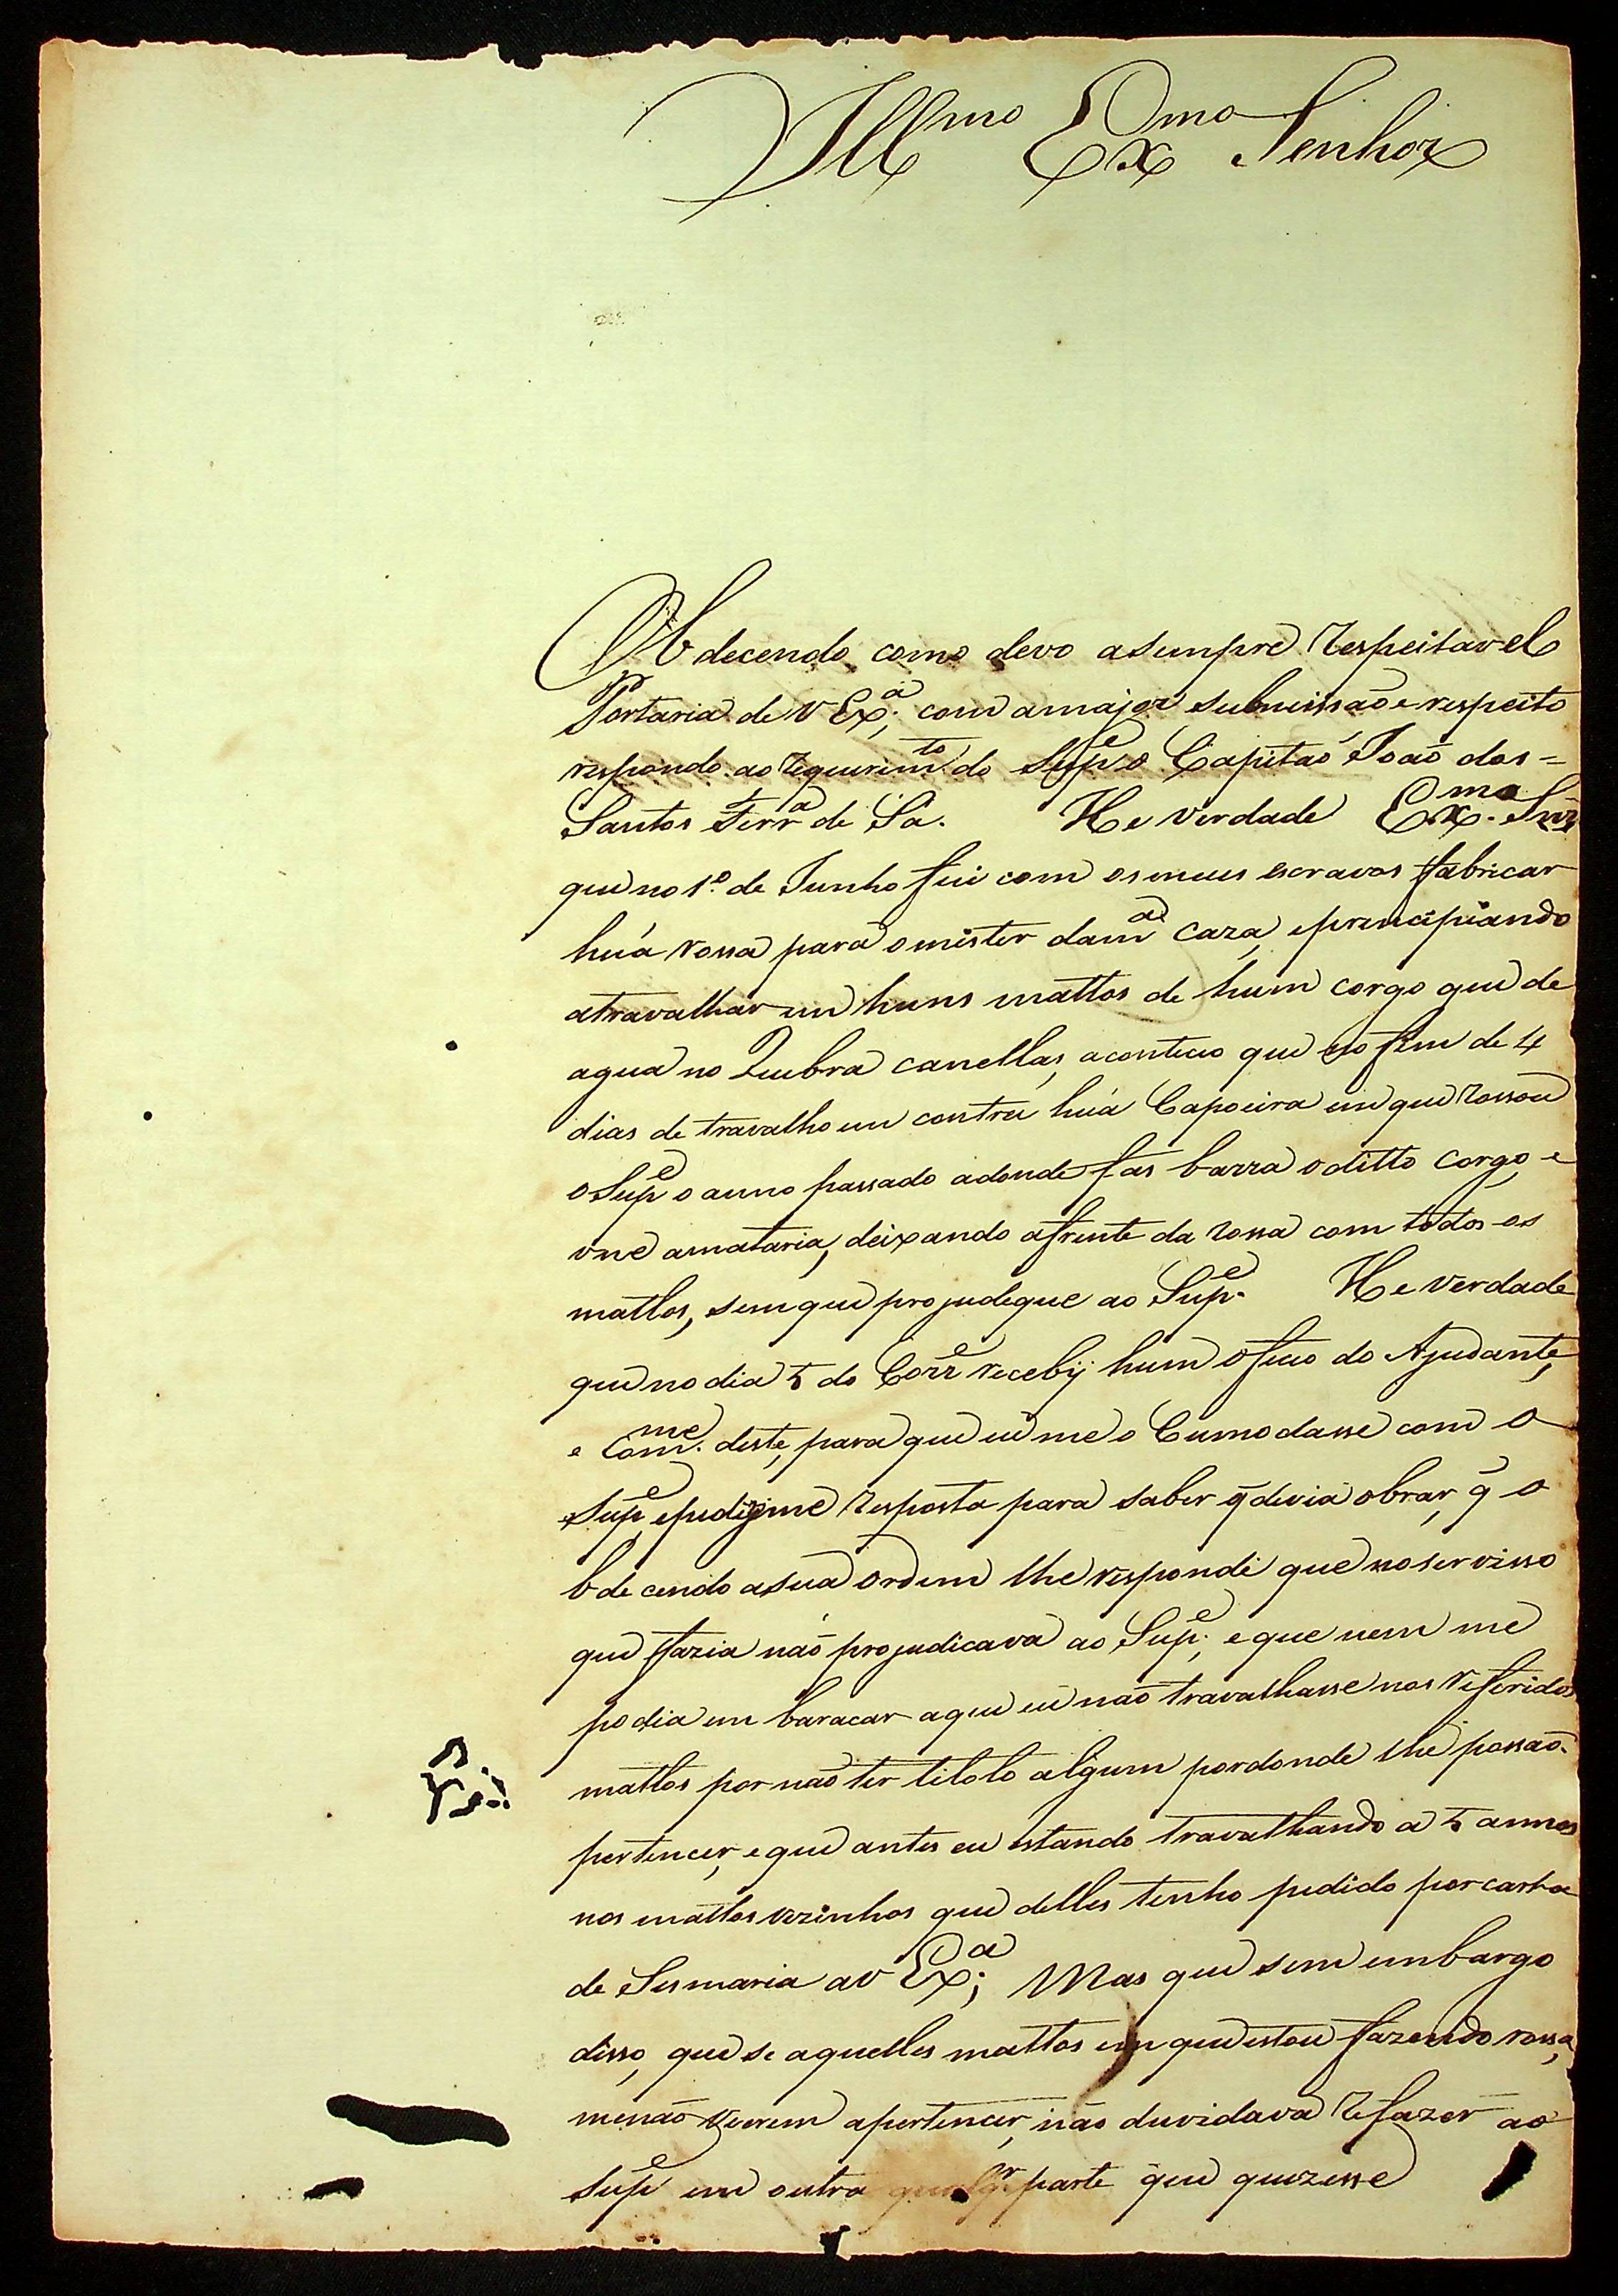 Ill.mo Ex.mo Senhor
Obdecendo como devo asempre Respeitavel
Portaria de V Ex.a; com amajor submissão e respeito
respondo ao Requerim.to do Sup.e o Capitão João dos =
Santos Ferr.a de Sá. He verdade Ex.mo Snr
que no 1.o de Junho fui com os meus escravos fabricar
huá rossa para o mister da m.a caza, eprencipiando
atravalhar em huns mattos de hum corgo que de
agua no Quebra canellas, aconteceo que no fim de 4
dias de travalho em contrei huá Capoeira em que Rossou
o Sup.e o anno passado adonde fas barra o ditto corgo, e
une amataria, deixando afrente da Rossa com todos os
mattos, sem que projudeque ao Sup.e He verdade
que no dia 5 do Corr.e recebij hum oficio do Ajudante,
e Com.me deste, para que eu me o Cumodasse com o
Sup.e, epedijme Resposta para saber q̃ devia obrar, q̃ o
bdecendo asua ordem lhe respondi que no servisso
que fazia não projudicava ao Sup.e, e que nem me
podia em baracar aque eu não travalhasse nos Referidos
mattos por não ter titolo algum pordonde lhe possaõ
pertencer, e que antes eu estando travalhando a 5 annos
nos mattos vezinhos que delles tenho pedido por carta
de Sesmaria a V Ex.a; Mas que sem embargo
disso, que se aquelles mattos em que estou fazendo rossa,
menão vierem apertencer, não duvidava Refazer ao
Sup.e em outra qualq.r parte que quizesse